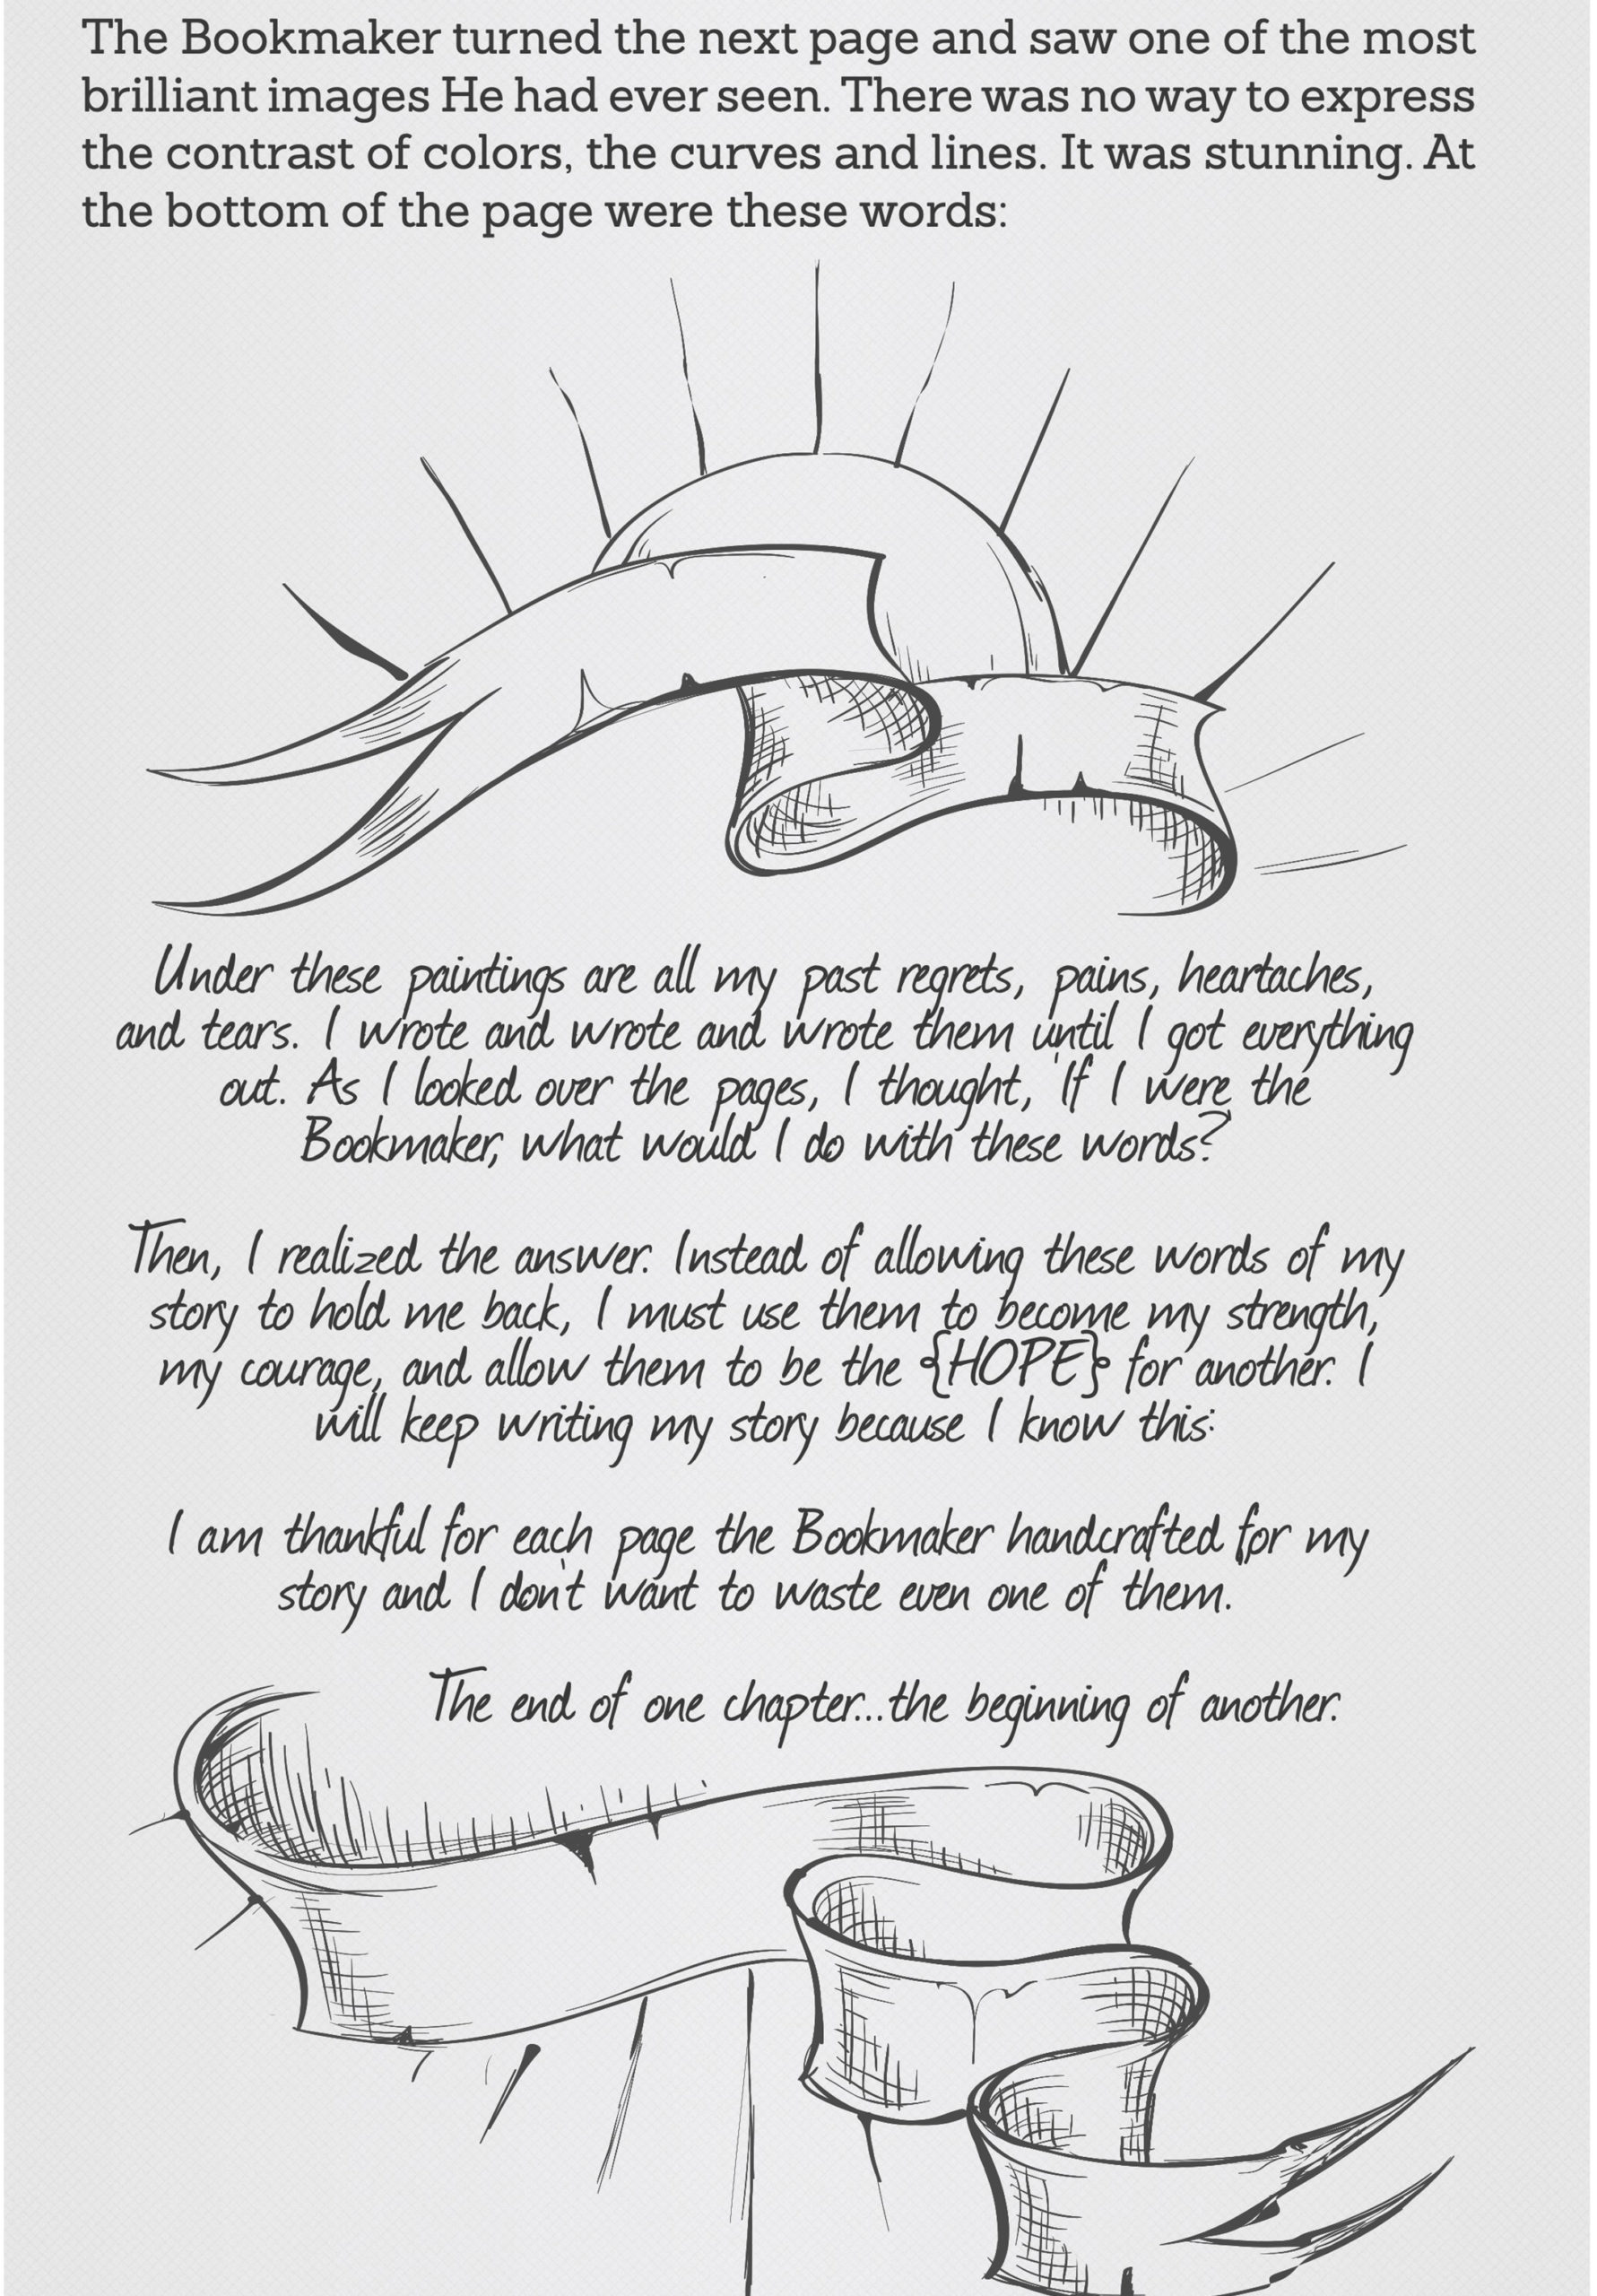 The Bookmaker turned the next page and saw one of the most
brilliant images He had ever seen. There was no way to express
the contrast of colors, the curves and lines. It was stunning. At
the bottom of the page were these words:
Under these paintings are all my past regrets, pains, heartaches,
and tears. I wrote and wrote and wrote them until I got everything
out. As I looked over the pages, I thought, 'If I were the
Bookmaker, what would I do with these words?
Then, I realized the answer. Instead of allowing these words of my
story to hold me back, I must use them to become my strength,
my courage, and allow them to be the {HOPE} for another. I
will keep writing my story because I know this:
I am thankful for each page the Bookmaker handcrafted for my
story and I don't want to waste even one of them.
The end of one chapter...the beginning of another.